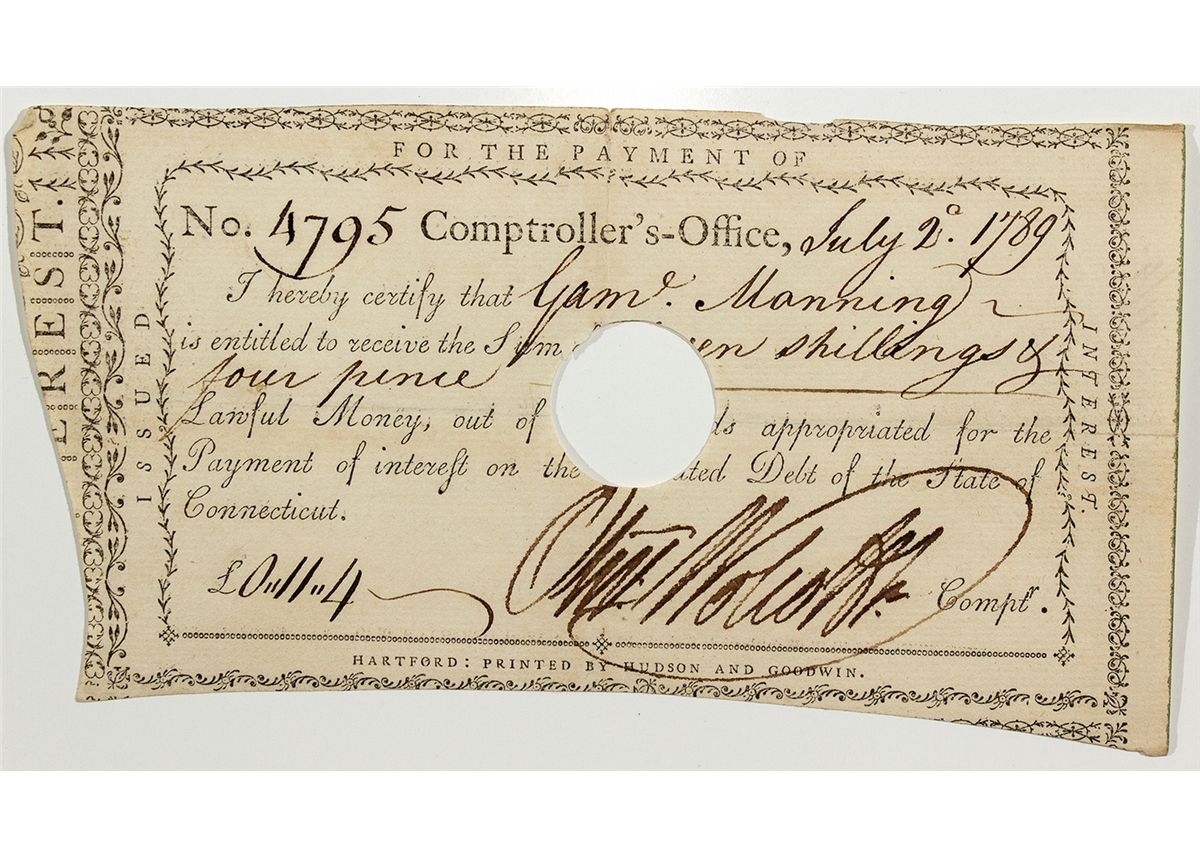 FOR THE PAYMENT OF
No. 4795 Comptroller's-Office, July 2ᵈ. 1789
I hereby certify that Gamˡ. Manning
is entitled to receive the Sum shillings &
four pence
Lawful Money, out of appropriated for the
Payment of interest on the Debt of the State of
Connecticut.
£0"11"4
Olivʳ Wolcott Jr. Comptʳ.
HARTFORD: PRINTED BY HUDSON AND GOODWIN.
ISSUED
INTEREST.
EREST.